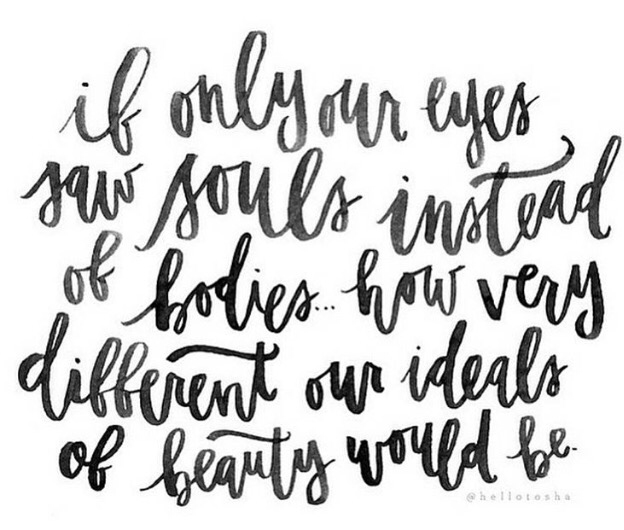 if only our eyes
saw souls instead
of bodies... how very
different our ideals
of beauty would be.
@hellotosha